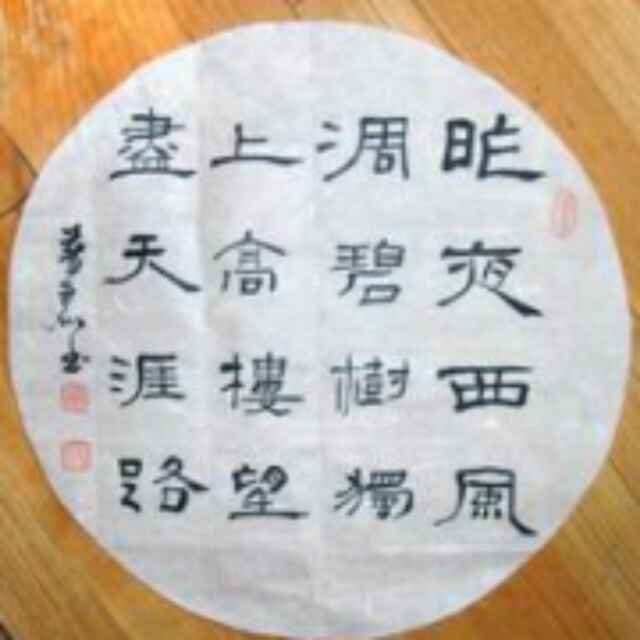 昨夜西風
凋碧樹獨
上高樓望
盡天涯路